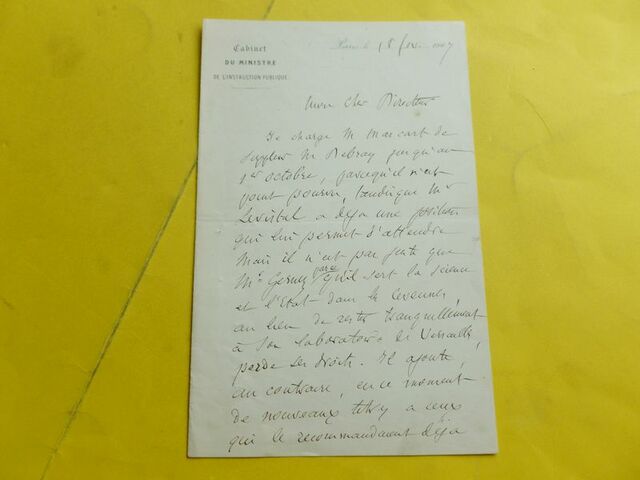 Cabinet
DU MINISTRE
DE L'INSTRUCTION PUBLIQUE
Paris le 18
Mon Cher Directeur
Je charge M Mascart de
suppléer M Debray jusqu'au
1er octobre, parcequ'il n'est
point pourvu, tandisque Mr
a déja une position
qui lui permet d'attendre
Mais il n'est pas juste que
Mr Gernez parce qu'il sert la science
et l'Etat dans les Cevennes,
au lieu de rester tranquillement
à son laboratoire de Versailles,
perde ses droits. Il ajoute,
au contraire, en ce moment
de nouveaux titres a ceux
qui le recommandaient déja